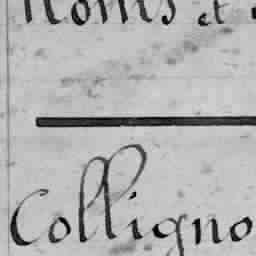 Noms et
Colligno